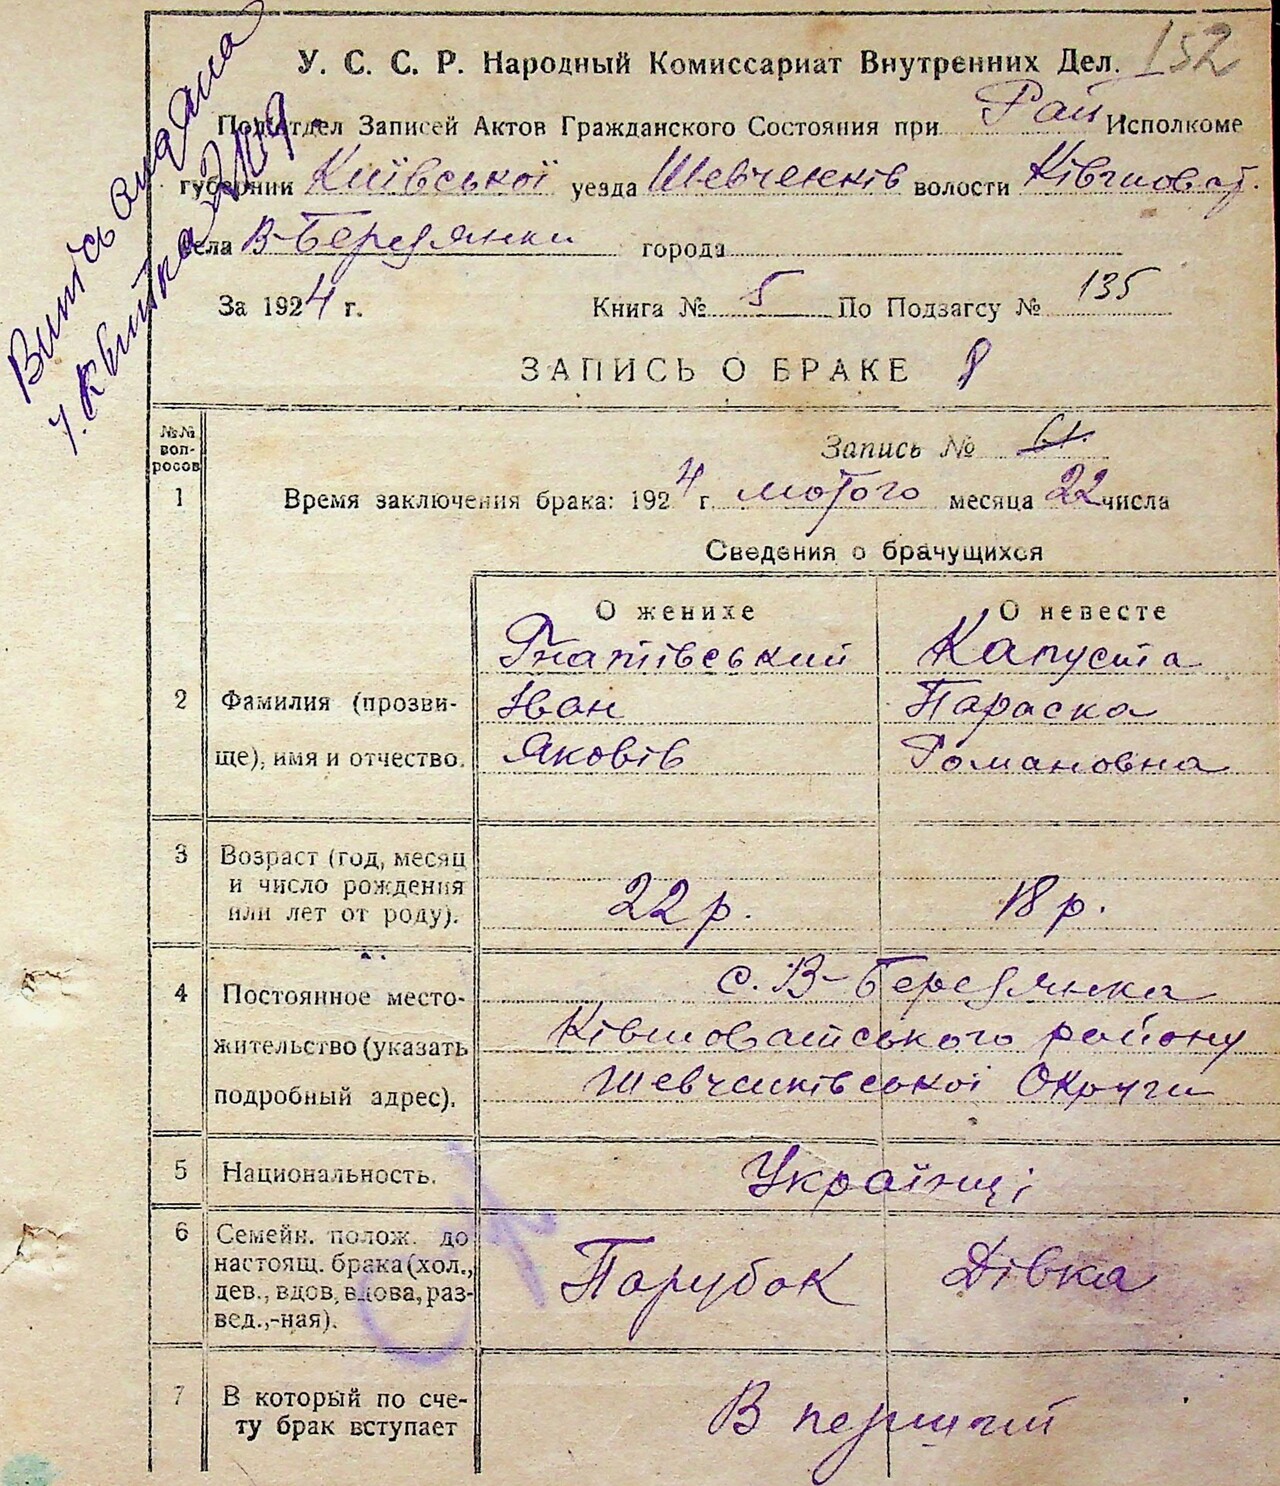 152
У. С. С. Р. Народный Комиссариат Внутренних Дел.
Подотдел Записей Актов Гражданского Состояния при Рай Исполкоме
губернии Київської уезда Шевченків волости Ківшоват.
села В-Березянки города
За 1924 г. Книга № 5 По Подзагсу № 135
ЗАПИСЬ О БРАКЕ 8
Випісь видана
№№ вопросов
Запись № 61.
1 Время заключения брака: 1924 г. лютого месяца 22 числа
Сведения о брачущихся
О женихе О невесте
Гнатівський Капуста
2 Фамилия (прозви- Іван Параска
ще), имя и отчество. Яковів Романовна
3 Возраст (год, месяц
и число рождения
или лет от роду). 22 р. 18 р.
4 Постоянное место- с. В-Березянка
жительство (указать Ківшоватського району
подробный адрес). Шевченківської Округи
5 Национальность. Українці
6 Семейн. полож. до
настоящ. брака (хол., Парубок Дівка
дев., вдов, вдова, раз-
вед.,-ная).
7 В который по сче- В перший
ту брак вступает